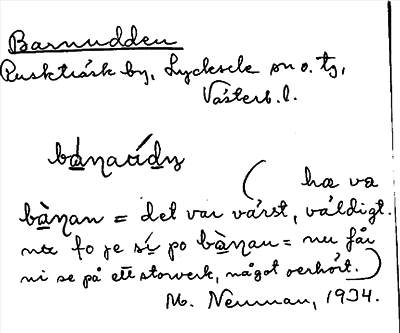 Barnudden
Ruskträsk by, Lycksele sn o. tg,
Västerb. l.
(ha va
bànan = det var värst, väldigt.
nu fo je sí po bànan = nu får
ni se på ett storverk, något oerhört.)
M. Neuman, 1934.